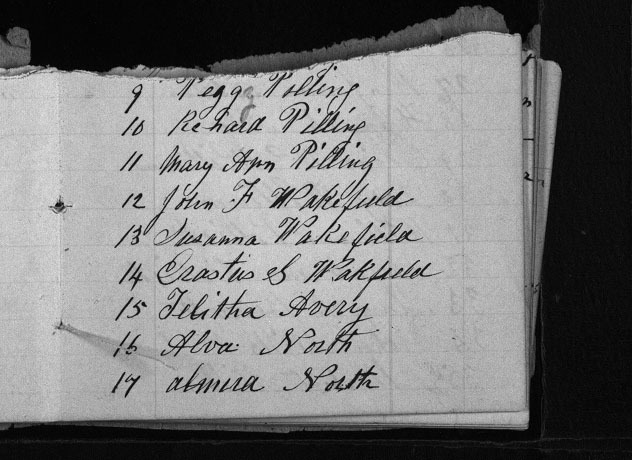 9 Pegg Pilling
10 Richard Pilling
11 Mary Ann Pilling
12 John F Wakefield
13 Susanna Wakefield
14 Erastus S Wakfield
15 Telitha Avery
16 Alva North
17 almira North